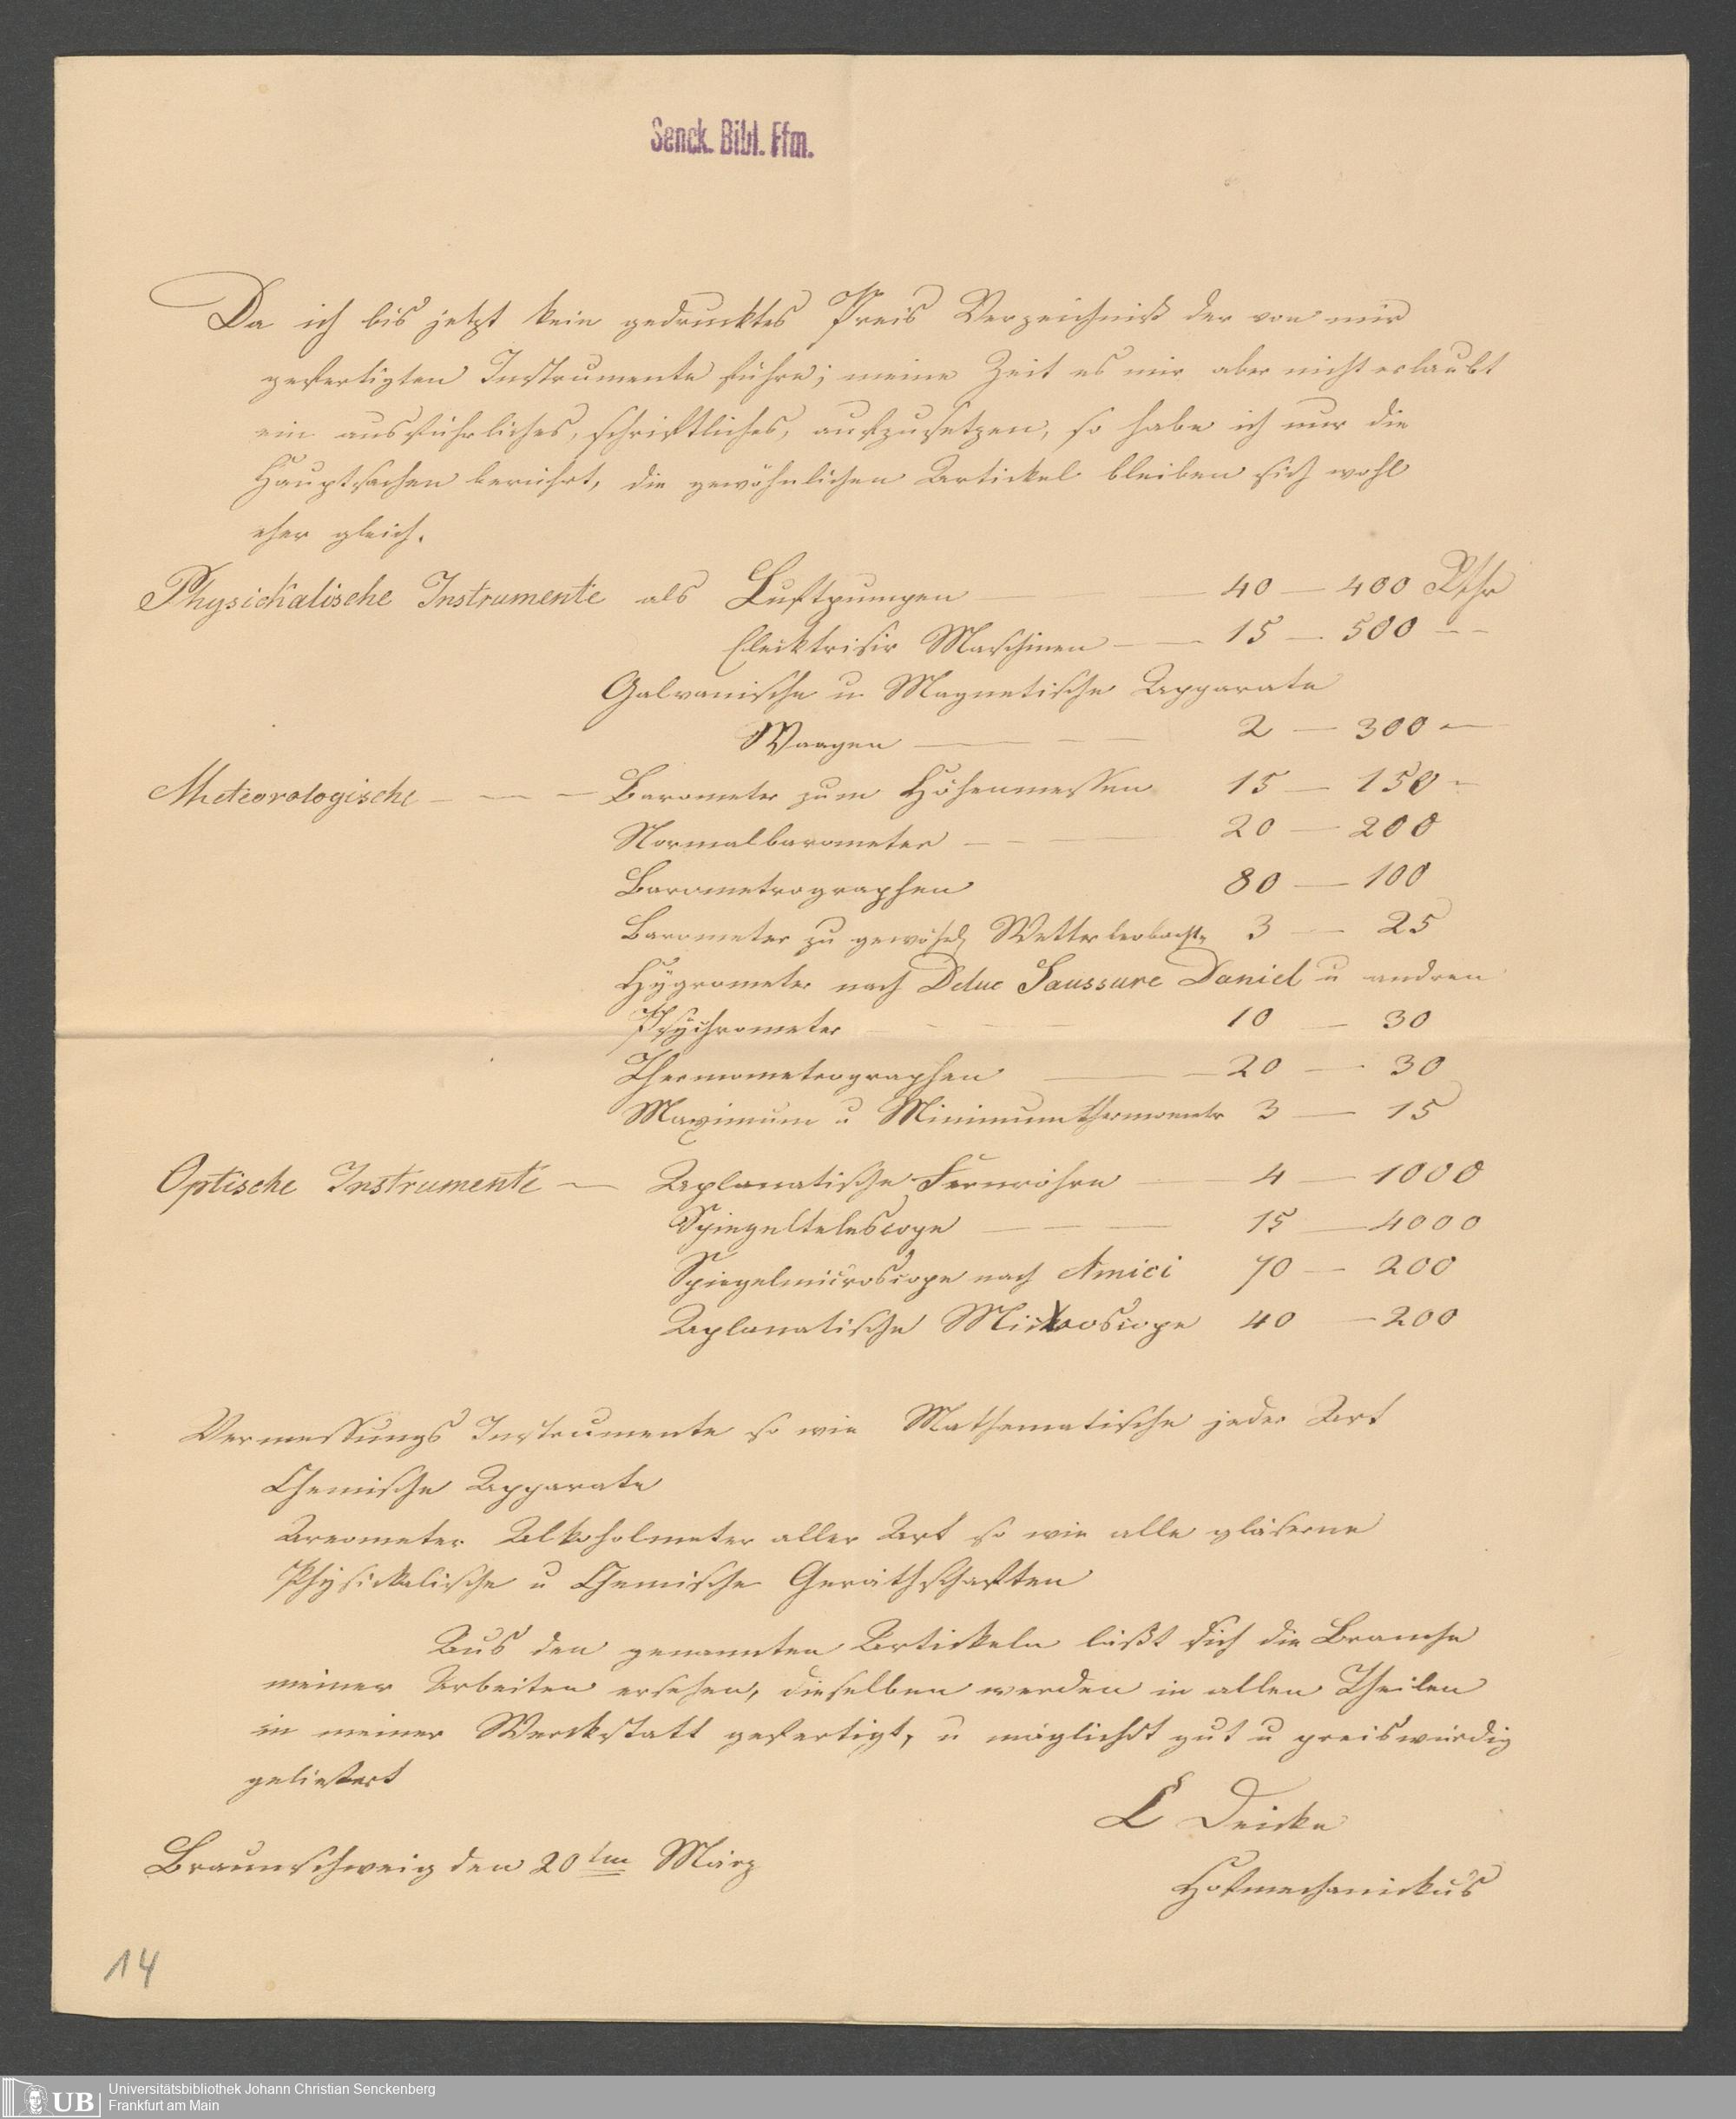 Senck. Bibl. Ffm.
Da ich bis jetzt kein gedrucktes Preis Verzeichniß der von mir
gefertigten Instrumente führe; meine Zeit es mir aber nicht erlaubt
ein ausführliches, schriftliches, aufzusetzen, so habe ich nur die
Hauptsachen berührt, die gewöhnlichen Artickel bleiben sich wohl
eher gleich.
Physickalische Instrumente als Luftpumpen — 40 — 400 Rthr
Elecktrisir Maschinen — — 15 — 500 — —
Galvanische u Magnetische Apparate
Waagen — — — 2 — 300 —
Meteorologische — — — Barometer zum Höhenmessen 15 — 150 —
Normalbarometer — — — 20 — 200
Barometrographen 80 — 100
Barometer zu gewöhnl Wetterbeobacht. 3 — 25
Hygrometer nach Deluc Saussure Daniel u andren
Psychrometer — — — 10 — 30
Thermometrographen — — 20 — 30
Maximum u Minimumthermometr 3 — 15
Optische Instrumente — Aplanatische Fernröhre — 4 — 1000
Spiegeltelescope — — — 15 — 4000
Spiegelmicroscope nach Amici 70 — 200
Aplanatische Microscope 40 — 200
Vermessungs Instrumente so wie Mathematische jeder Art
Chemische Apparate
Areometer Alkoholmeter aller Art so wie alle gläserne
Physickalische u Chemische Geräthschaften
Aus den genannten Artickeln läßt sich die Branche
meiner Arbeiten ersehen, dieselben werden in allen Theilen
in meiner Werckstatt gefertigt, u möglichst gut u preiswürdig
geliefert
L Deicke
Braunschweig den 20ten März
Hofmechanickus
14
UB Universitätsbibliothek Johann Christian Senckenberg
Frankfurt am Main